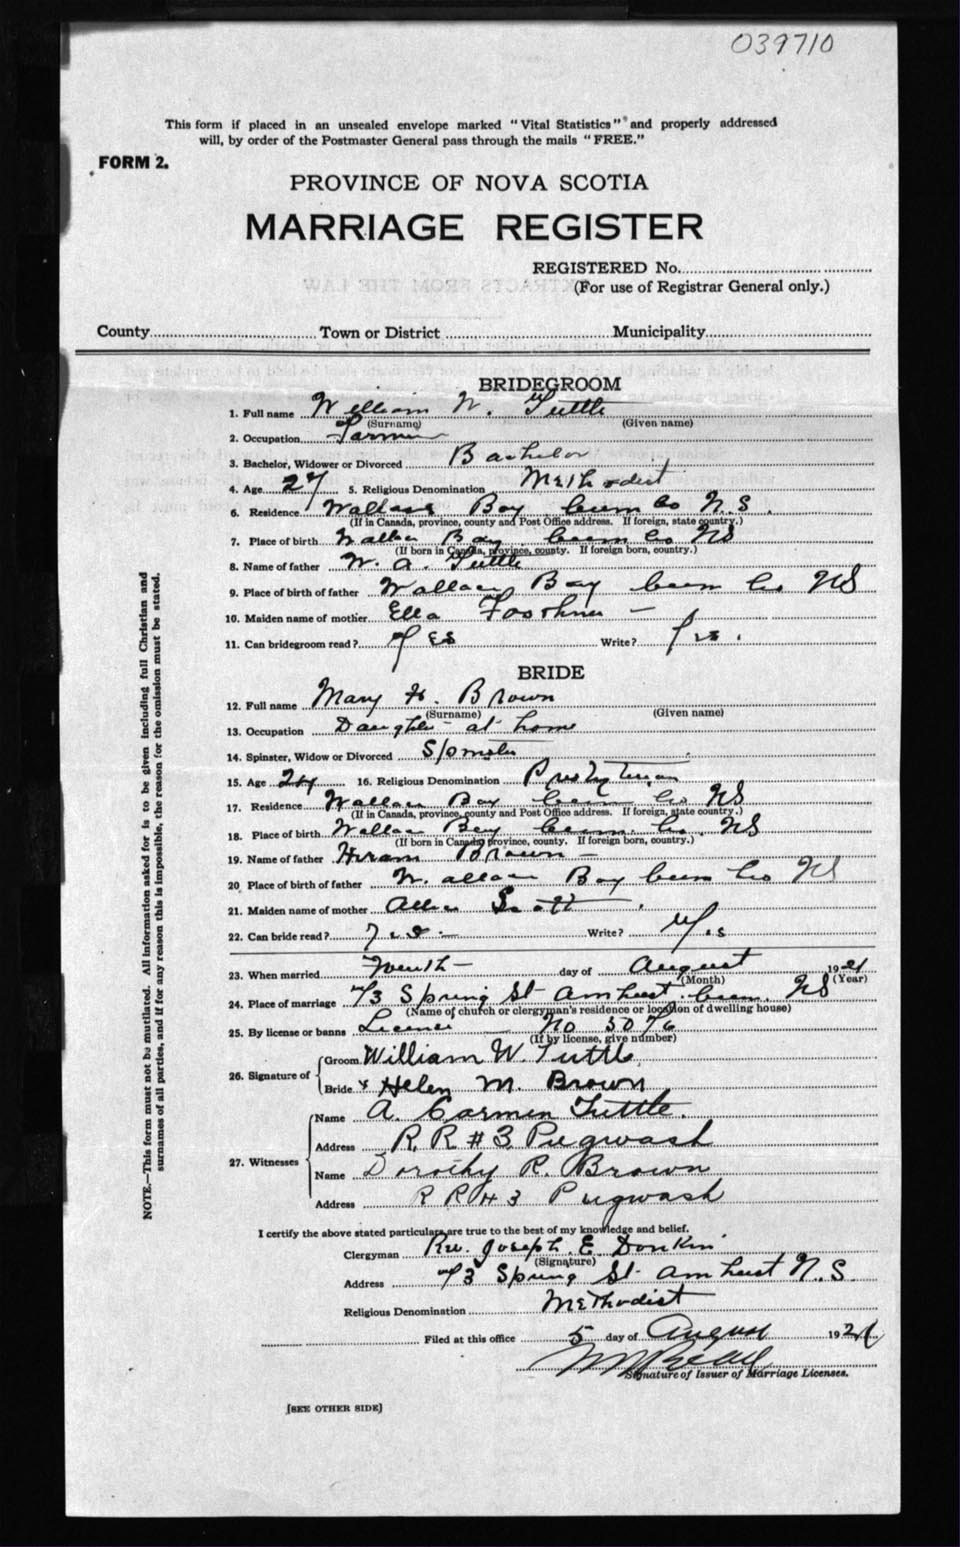 039710
This form if placed in an unsealed envelope marked "Vital Statistics" and properly addressed
will, by order of the Postmaster General pass through the mails "FREE."
FORM 2.
PROVINCE OF NOVA SCOTIA
MARRIAGE REGISTER
REGISTERED No.
(For use of Registrar General only.)
County Town or District Municipality
BRIDEGROOM
1. Full name William W. Tuttle
(Surname) (Given name)
2. Occupation Farmer
3. Bachelor, Widower or Divorced Bachelor
4. Age 27 5. Religious Denomination Methodist
6. Residence Wallace Bay Cum Co N.S.
(If in Canada, province, county and Post Office address. If foreign, state country.)
7. Place of birth Wallace Bay Cum Co NS
(If born in Canada, province, county. If foreign born, country.)
8. Name of father W. A. Tuttle
9. Place of birth of father Wallace Bay Cum Co NS
10. Maiden name of mother Ella
11. Can bridegroom read? Yes Write? Yes.
BRIDE
12. Full name Mary H. Brown
(Surname) (Given name)
13. Occupation Daughter at home
14. Spinster, Widow or Divorced Spinster
15. Age 24 16. Religious Denomination Presbyterian
17. Residence Wallace Bay Cum Co NS
(If in Canada, province, county and Post Office address. If foreign, state country.)
18. Place of birth Wallace Bay Cum. Co. NS
(If born in Canada, province, county. If foreign born, country.)
19. Name of father Hiram Brown
20. Place of birth of father Wallace Bay Cum Co NS
21. Maiden name of mother Scott
22. Can bride read? Yes Write? Yes
23. When married day of August 1921
(Month) (Year)
24. Place of marriage 73 Spring St Amherst Cum. NS
(Name of church or clergyman's residence or location of dwelling house)
25. By license or banns Licence No 5076
(If by license, give number)
26. Signature of
Groom William W. Tuttle
Bride x Helen M. Brown
27. Witnesses
Name A. Carmen Tuttle.
Address R.R #3 Pugwash
Name Dorothy R. Brown
Address R R # 3 Pugwash
I certify the above stated particulars are true to the best of my knowledge and belief.
Clergyman Rev. Joseph E. Donkin
(Signature)
Address 73 Spring St Amherst N.S
Religious Denomination Methodist
Filed at this office 5 day of August 1921
Signature of Issuer of Marriage Licenses.
[SEE OTHER SIDE]
NOTE.—This form must not be mutilated. All information asked for is to be given including full Christian and
surnames of all parties, and if for any reason this is impossible, the reason for the omission must be stated.